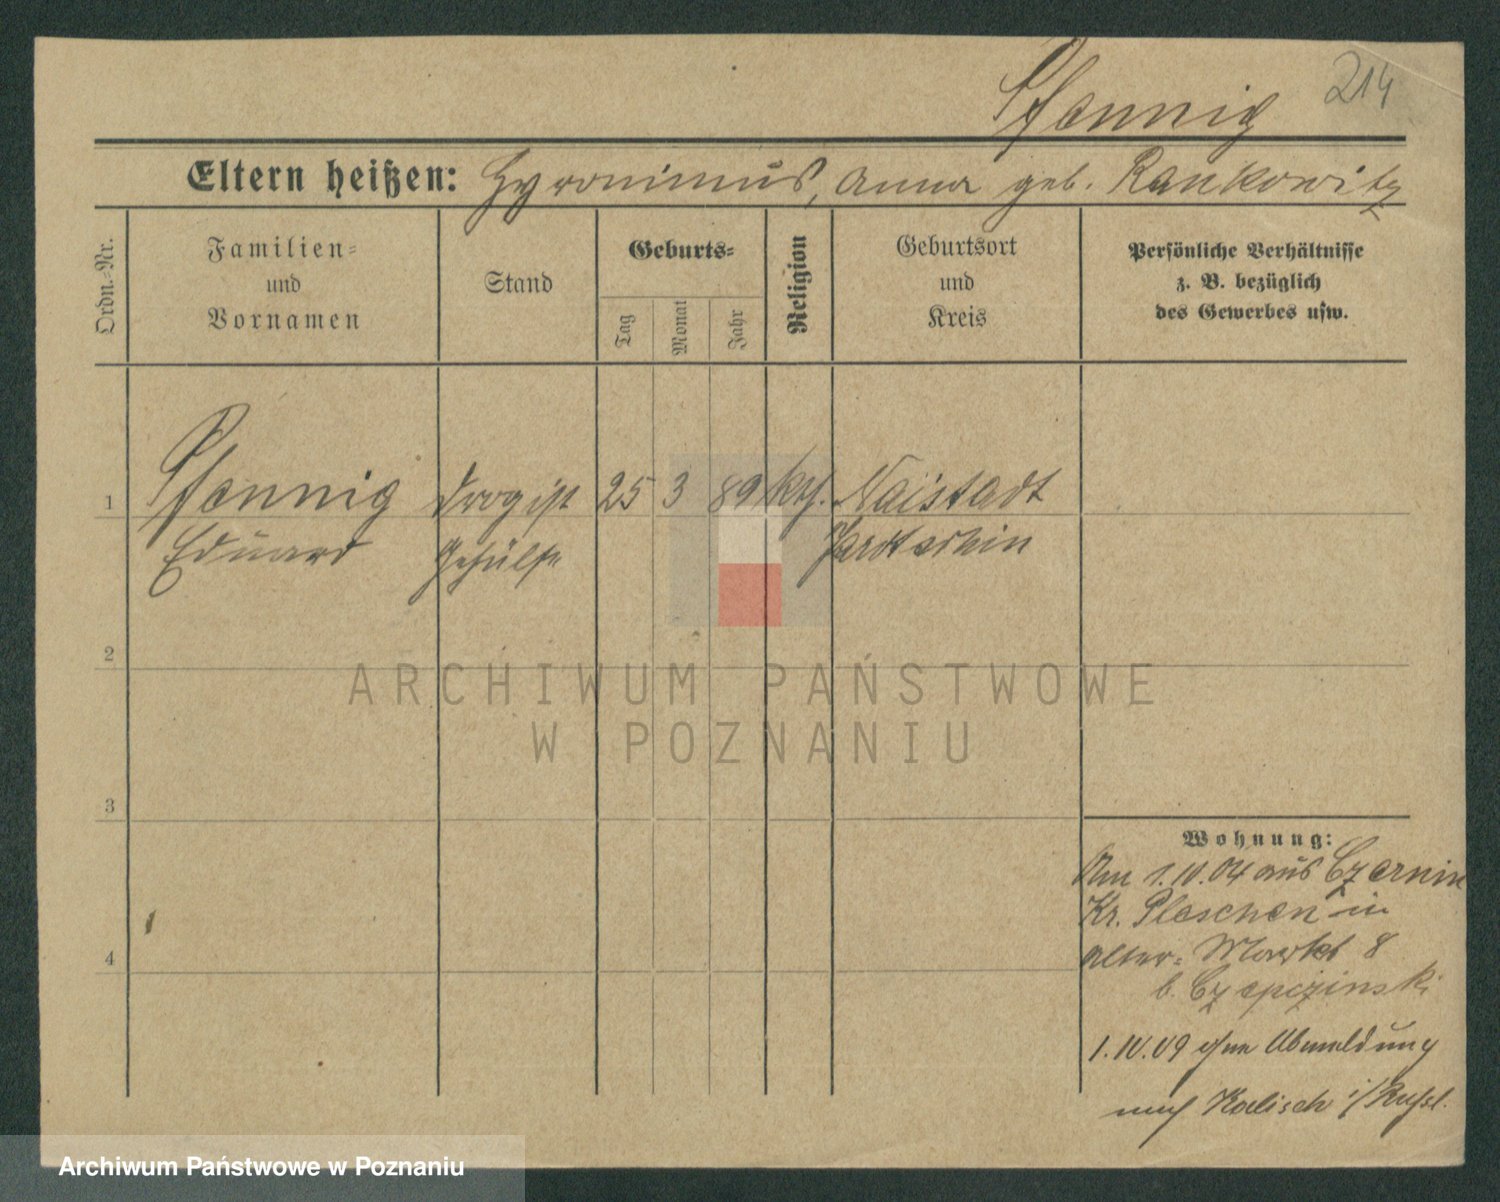 Pfennig
214
Eltern heißen: Hyronimus, Anna geb. Rankowitz
Ordn.-Nr.
Familien-
und
Vornamen
Stand
Geburts-
Tag
Monat
Jahr
Religion
Geburtsort
und
Kreis
Persönliche Verhältnisse
z. B. bezüglich
des Gewerbes usw.
1
Pfennig Drogist 25 3 89 kth. Naistadt
Eduard Gehülfe
2
3
4
Wohnung:
Am 1.IV.04 aus Czernin
Kr. Pleschen in
Alter-Markt 8
b. Czepczinski
1.IV.09 ohne Abmeldung
nach Kalisch i/Russl.
ARCHIWUM PAŃSTWOWE
W POZNANIU
Archiwum Państwowe w Poznaniu